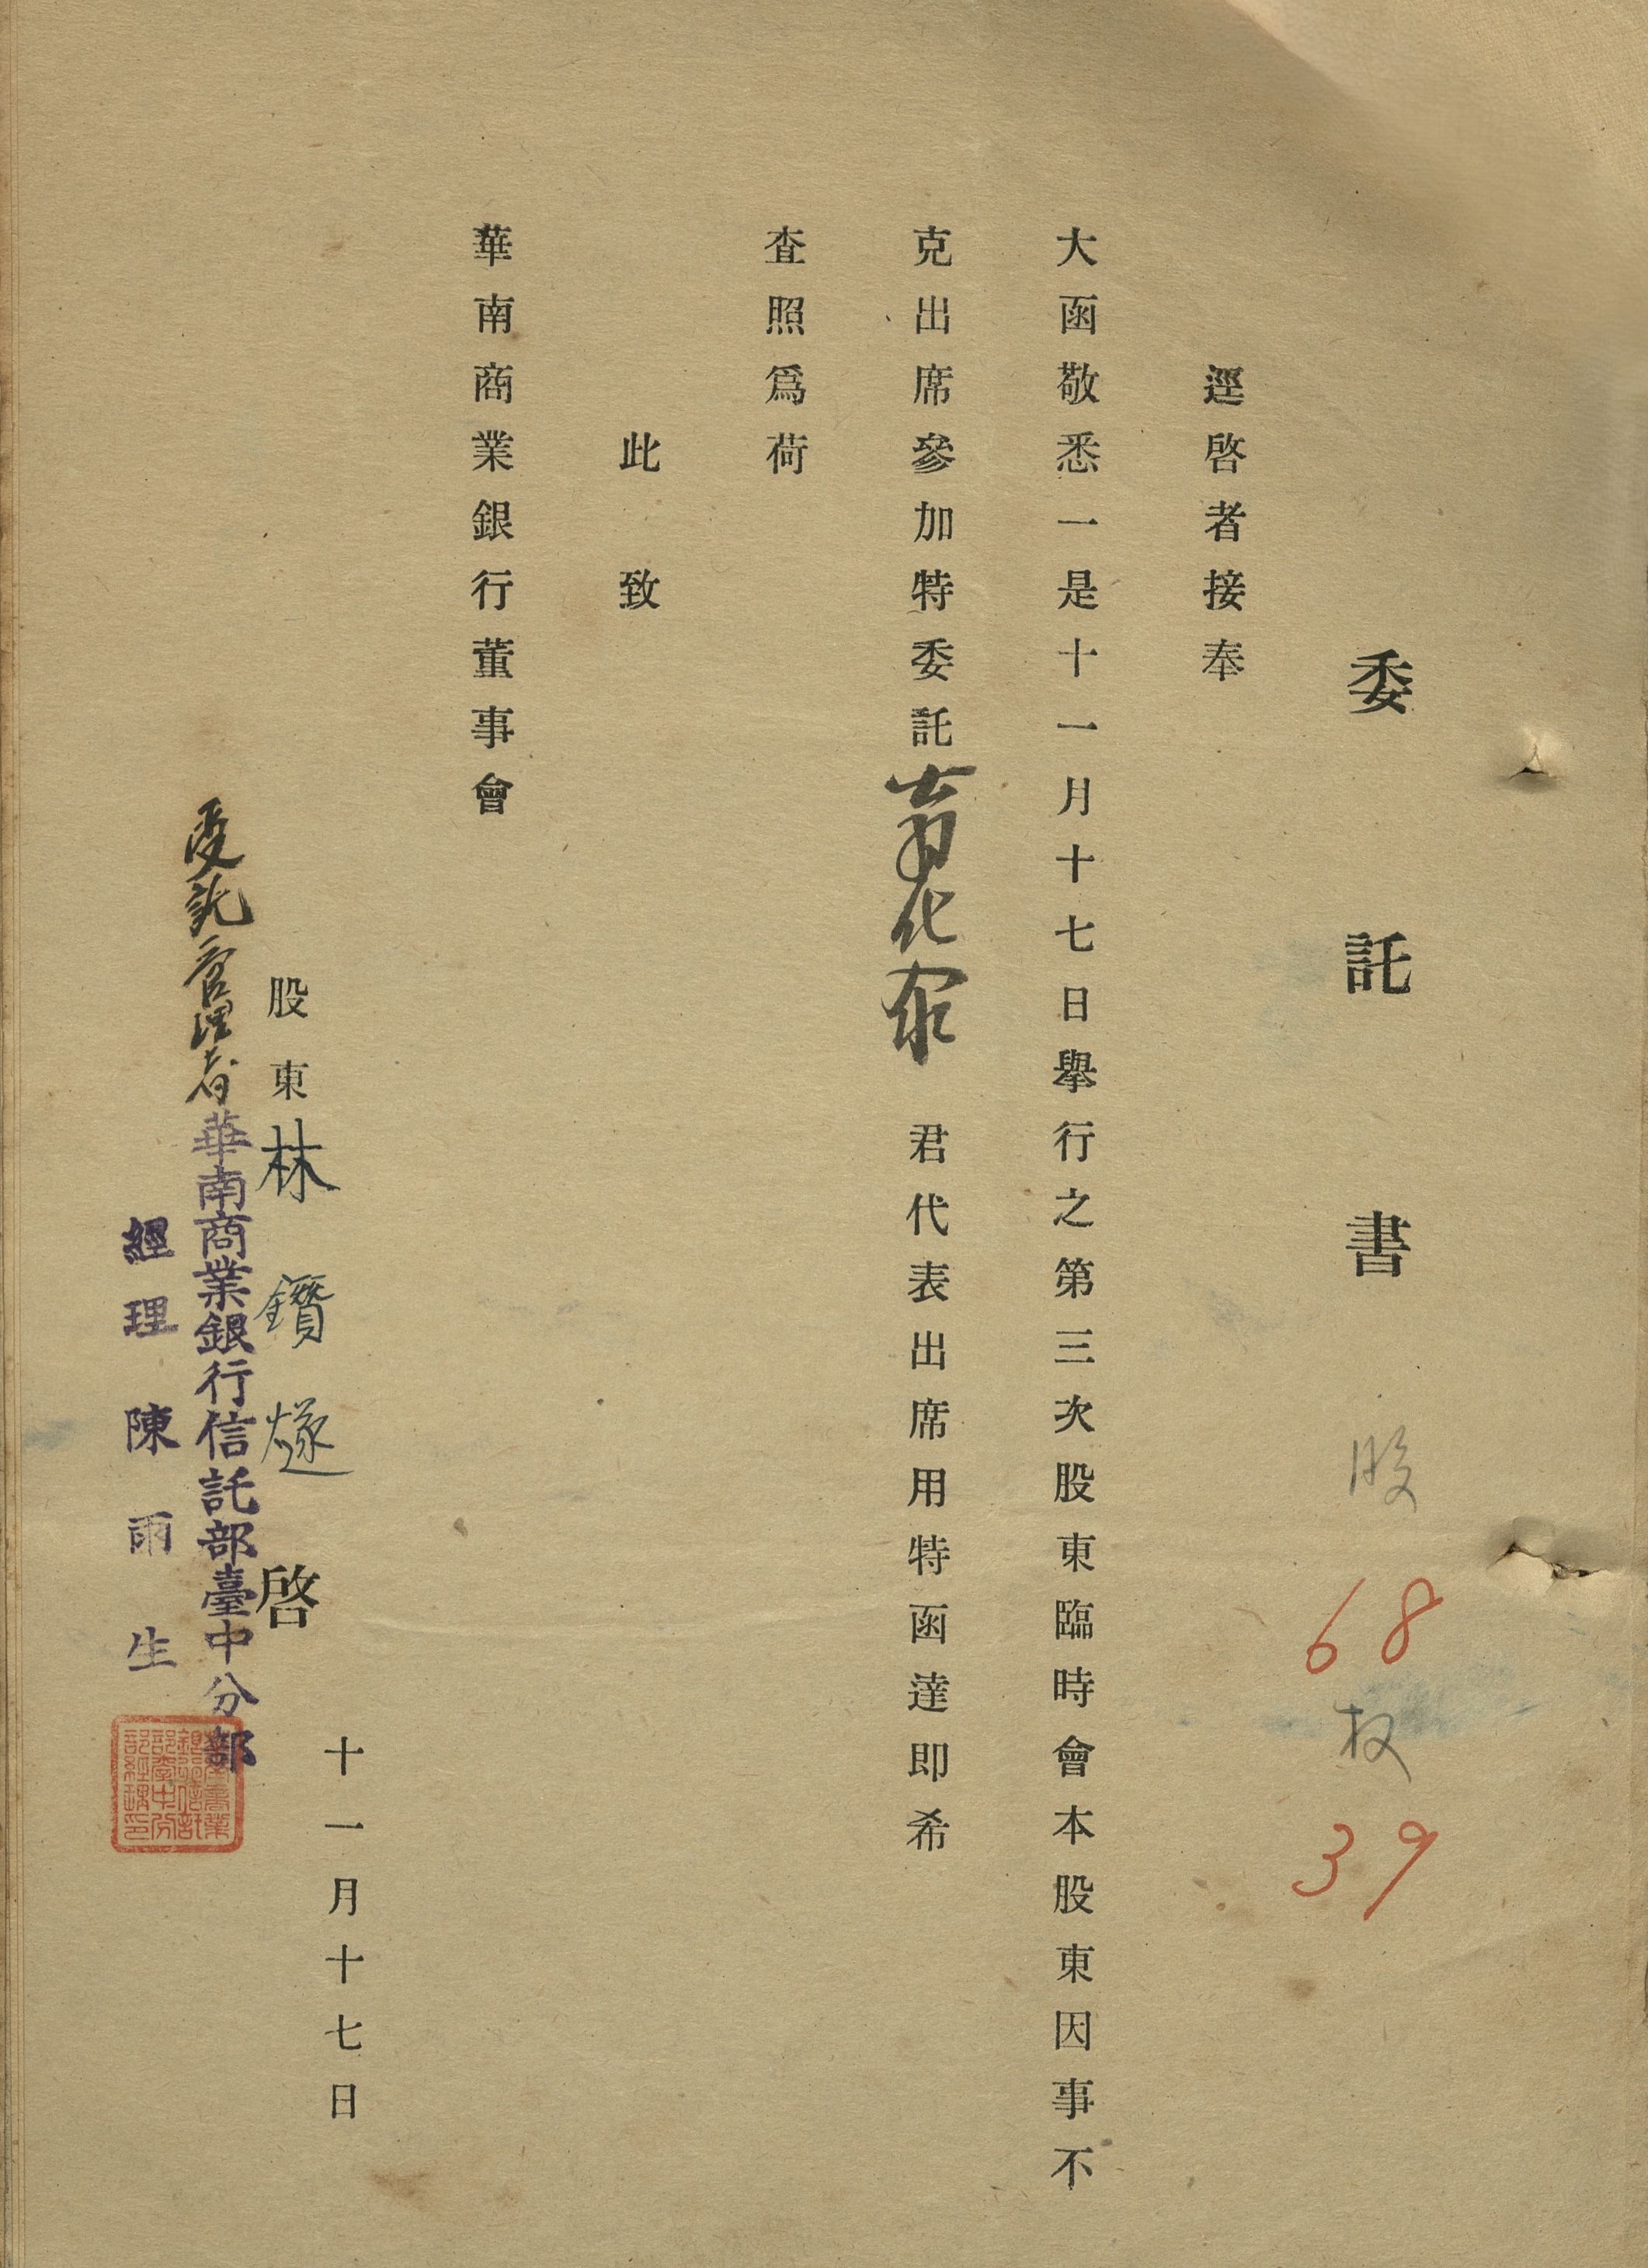 委託書 股 68 权 39
逕啓者接奉
大函敬悉一是十一月十七日舉行之第三次股東臨時會本股東因事不
克出席參加特委託 君代表出席用特函達即希
查照爲荷
此致
華南商業銀行董事會
十一月十七日
股東林鑽燧 啓
受託管理者華南商業銀行信託部臺中分部
經理 陳雨生
華南商業
銀行信託
部臺中分
部經理印